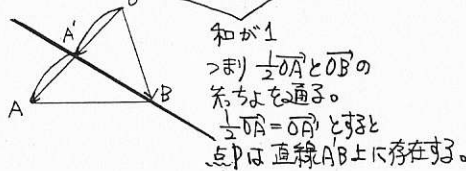 O
A'
A
B
和が1
つまり ½OA→とOB→の
先っちょを通る。
½OA→=OA'→とすると
点Pは直線A'B上に存在する。